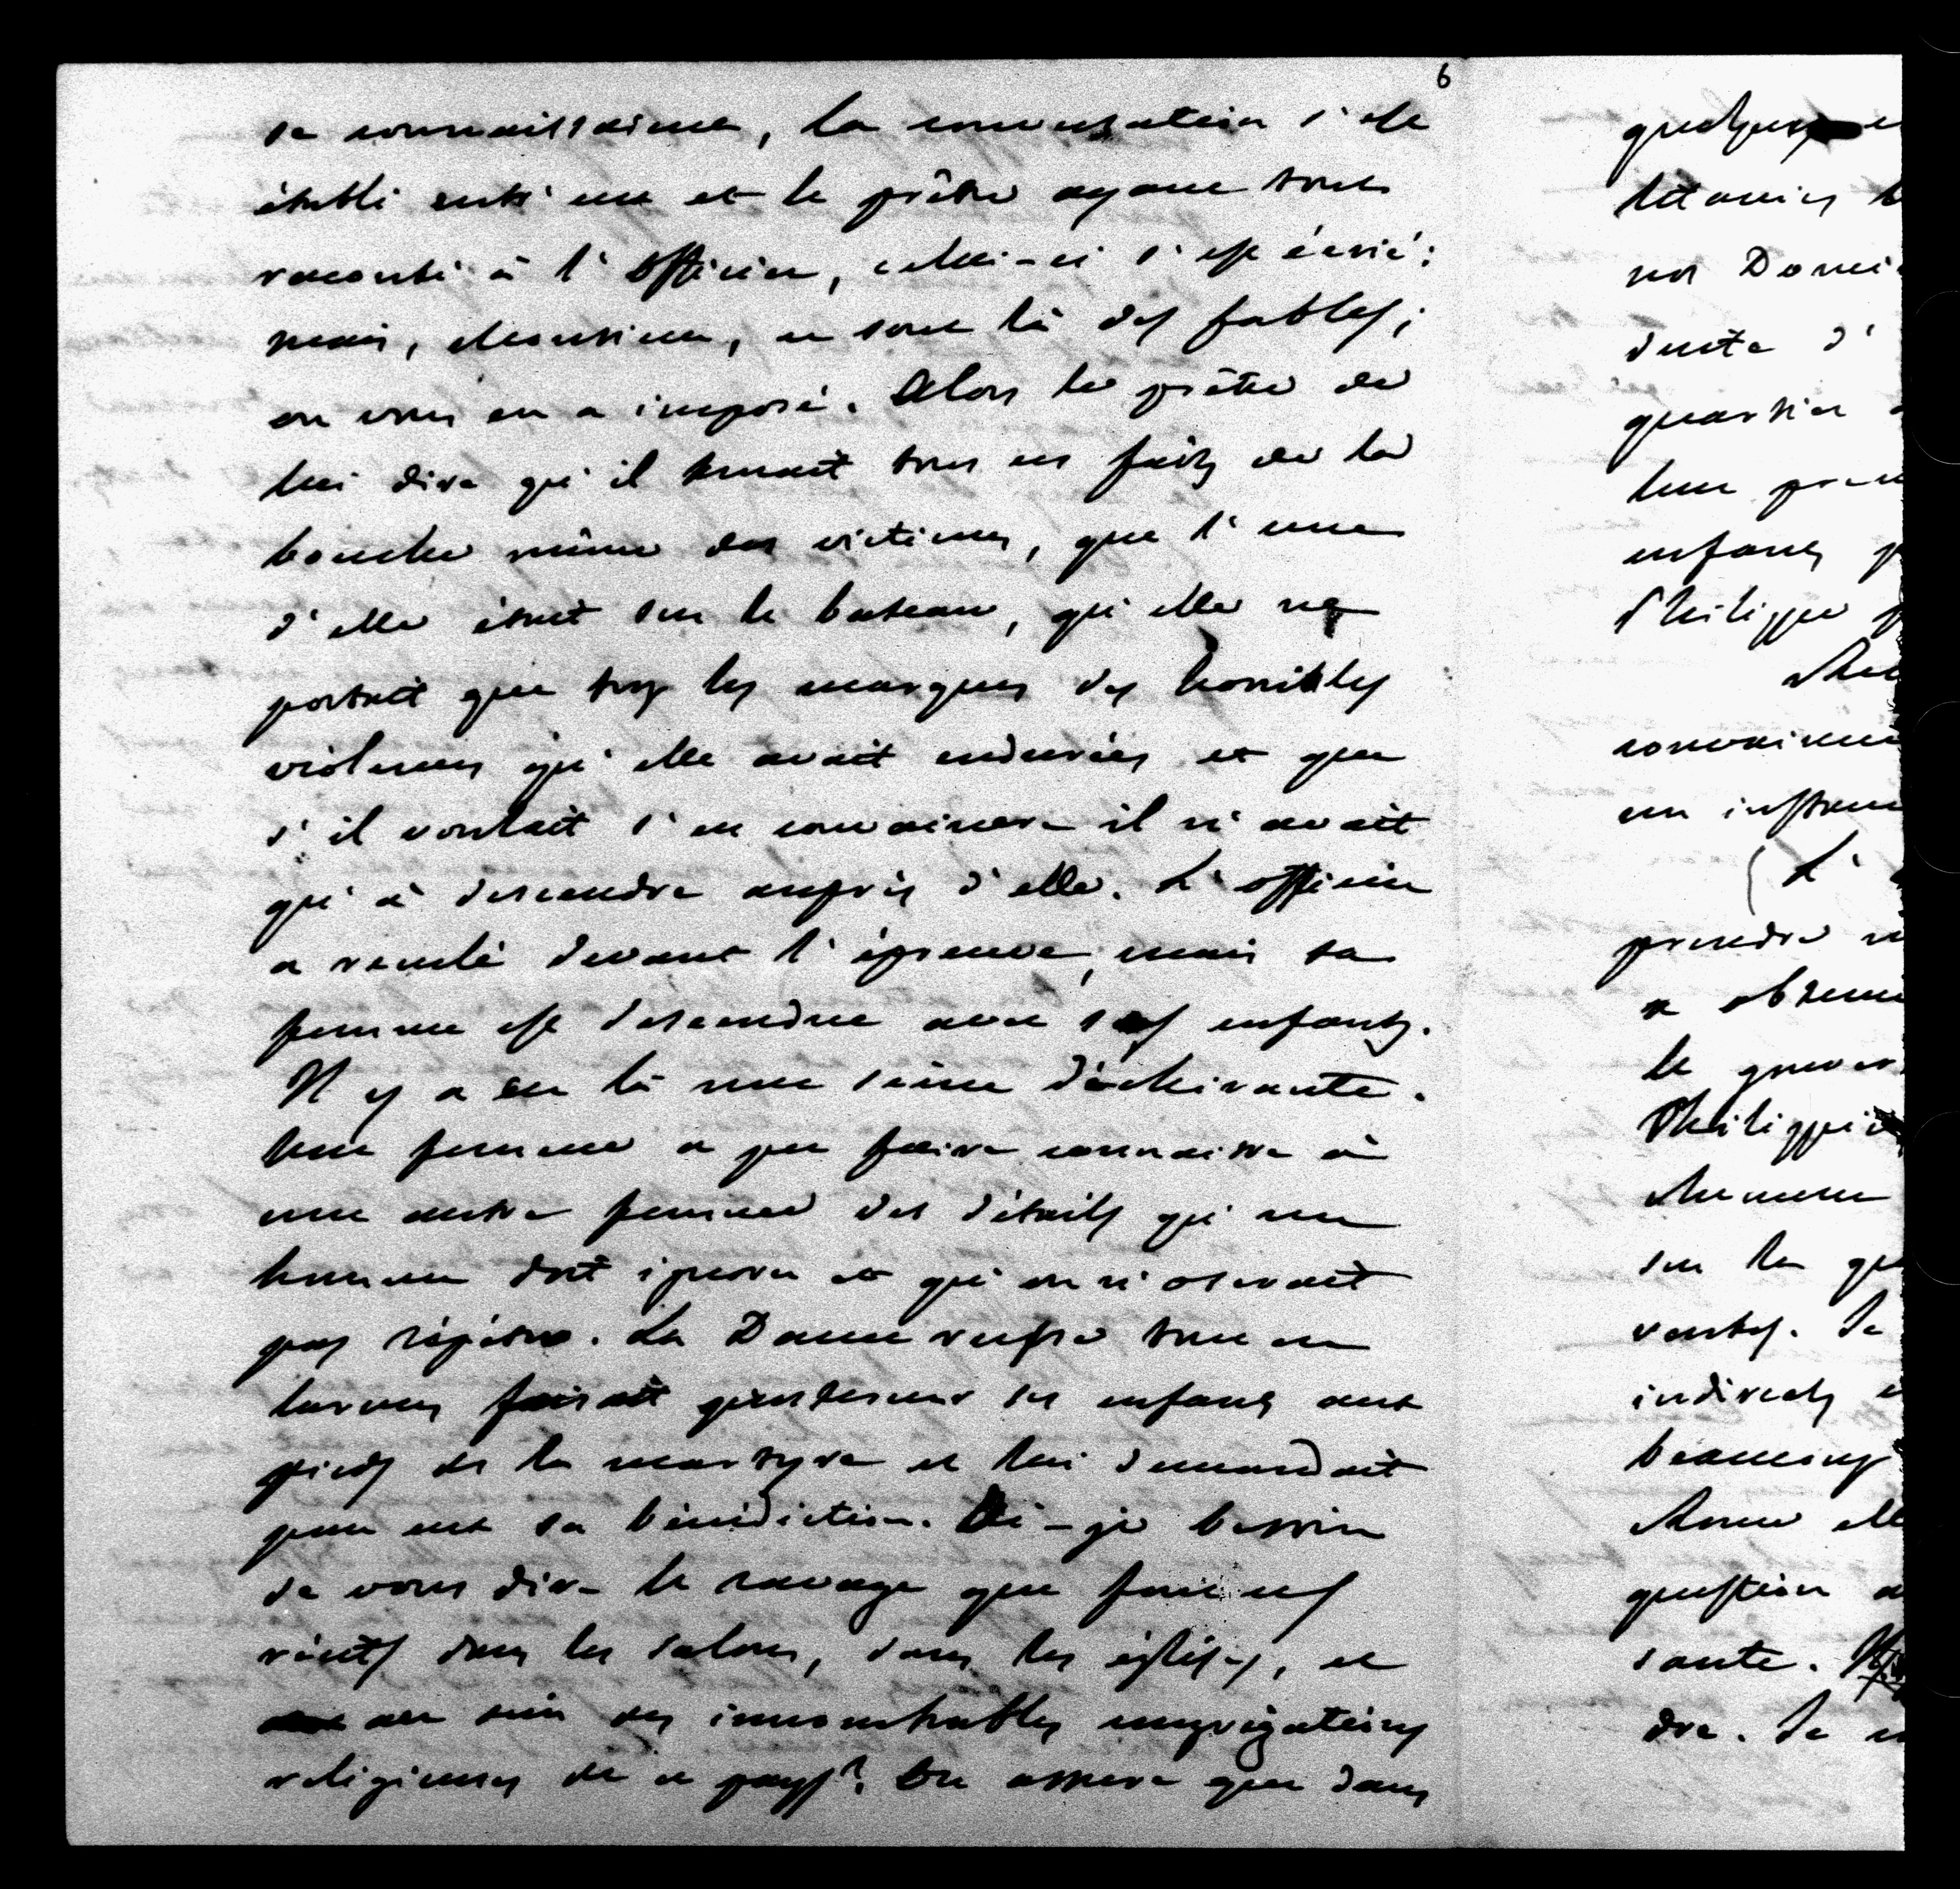 6
sa connaissance, la conversation s'est
établi entr'eux et le prêtre ayant tout
raconté à l'officier, celui-ci s'est écrié:
mais, Monsieur, ce sont là des fables;
on vous en a imposé. Alors le prêtre de
lui dire qu'il tenait tous ces faits de la
bouche même des victimes, que l'une
d'elle était sur le bateau, qu'elle ne
portait que trop les marques des horribles
violences qu'elle avait endurées et que
s'il voulait s'en convaincre il n'avait
qu'à descendre auprès d'elle. L'officier
a reculé devant l'épreuve, mais sa
femme est descendue avec ses enfants.
Il y a eu là une scène déchirante.
Une femme a pu faire connaître à
une autre femme des détails qu'un
homme doit ignorer et qu'on n'oserait
pas répéter. La Dame russe tout en
larmes faisait prosterner ses enfants aux
pieds de la martyre et lui demandait
pour eux sa bénédiction. Ai-je besoin
de vous dire le ravage que font ces
récits dans les salons, dans les églises, et
au sein des innombrables congrégations
religieuses de ce pays? On assure que dans
quelques
litanies
nos Domi
duite d'
quartier
leur
enfants
Philippe
convaincu
un instrum
L'
prendre
a obtenu
le gouver
Philippi
sur la
ventes. Je
indirects
beaucoup
Rome elle
question
sante.
dre. Je